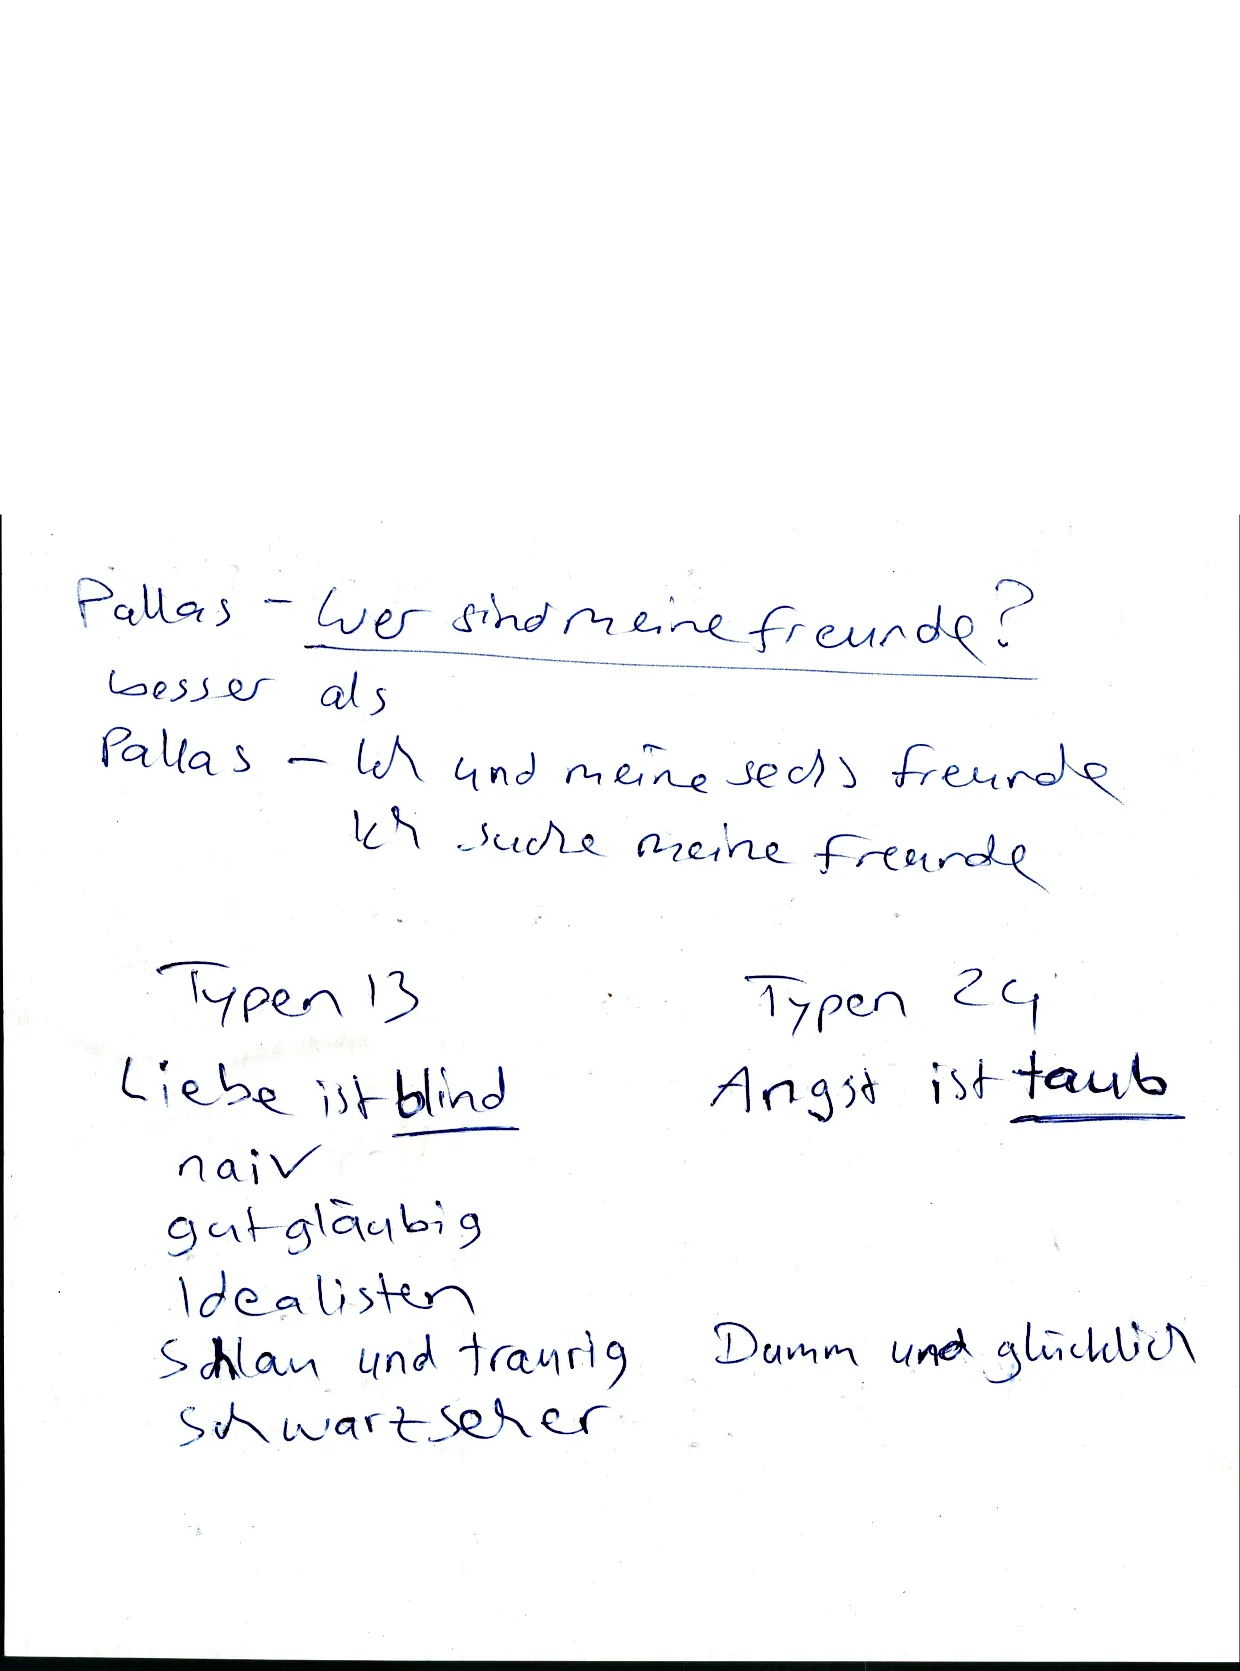 Pallas - Wer sind meine Freunde?
besser als
Pallas - Ich und meine sechs Freunde
Ich suche meine Freunde
Typen 13 Typen 24
Liebe ist blind Angst ist taub
naiv
gutgläubig
Idealisten
Schlau und traurig Dumm und glücklich
Schwartzseher